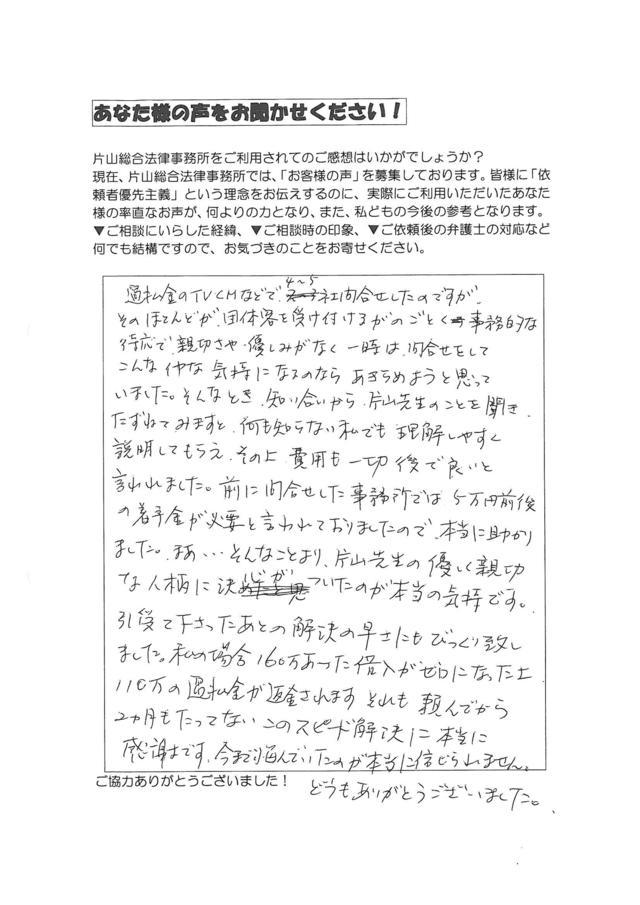 あなた様の声をお聞かせください！
片山総合法律事務所をご利用されてのご感想はいかがでしょうか？
現在、片山総合法律事務所では、「お客様の声」を募集しております。皆様に「依
頼者優先主義」という理念をお伝えするのに、実際にご利用いただいたあなた
様の率直なお声が、何よりの力となり、また、私どもの今後の参考となります。
▼ご相談にいらした経緯、▼ご相談時の印象、▼ご依頼後の弁護士の対応など
何でも結構ですので、お気づきのことをお寄せください。
過払金のTVCMなどで、4～5社問合せしたのですが、
そのほとんどが、団体客を受け付けるがのごとく事務的な
待応で、親切さや優しみがなく一時は、問合せをして
こんなイヤな気持になるのなら あきらめようと思って
いました。そんなとき、知り合いから、片山先生のことを聞き、
たずねてみますと、何も知らない私でも理解しやすく
説明してもらえ、その上、費用も一切後で良いと
言われました。前に問合せした事務所では5万円前後
の着手金が必要と言われておりましたので、本当に助かり
ました。まあ…そんなことより、片山先生の優しく親切
な人柄に決心がついたのが本当の気持です。
引受て下さったあとの解決の早さにもびっくり致し
ました。私の場合160万あった借入がゼロになった上
110万の過払金が返金されます それも頼んでから
2ヵ月もたってない このスピード解決に本当に
感謝です。今まで悩んでいたのが本当に信じられません。
どうもありがとうございました。
ご協力ありがとうございました！